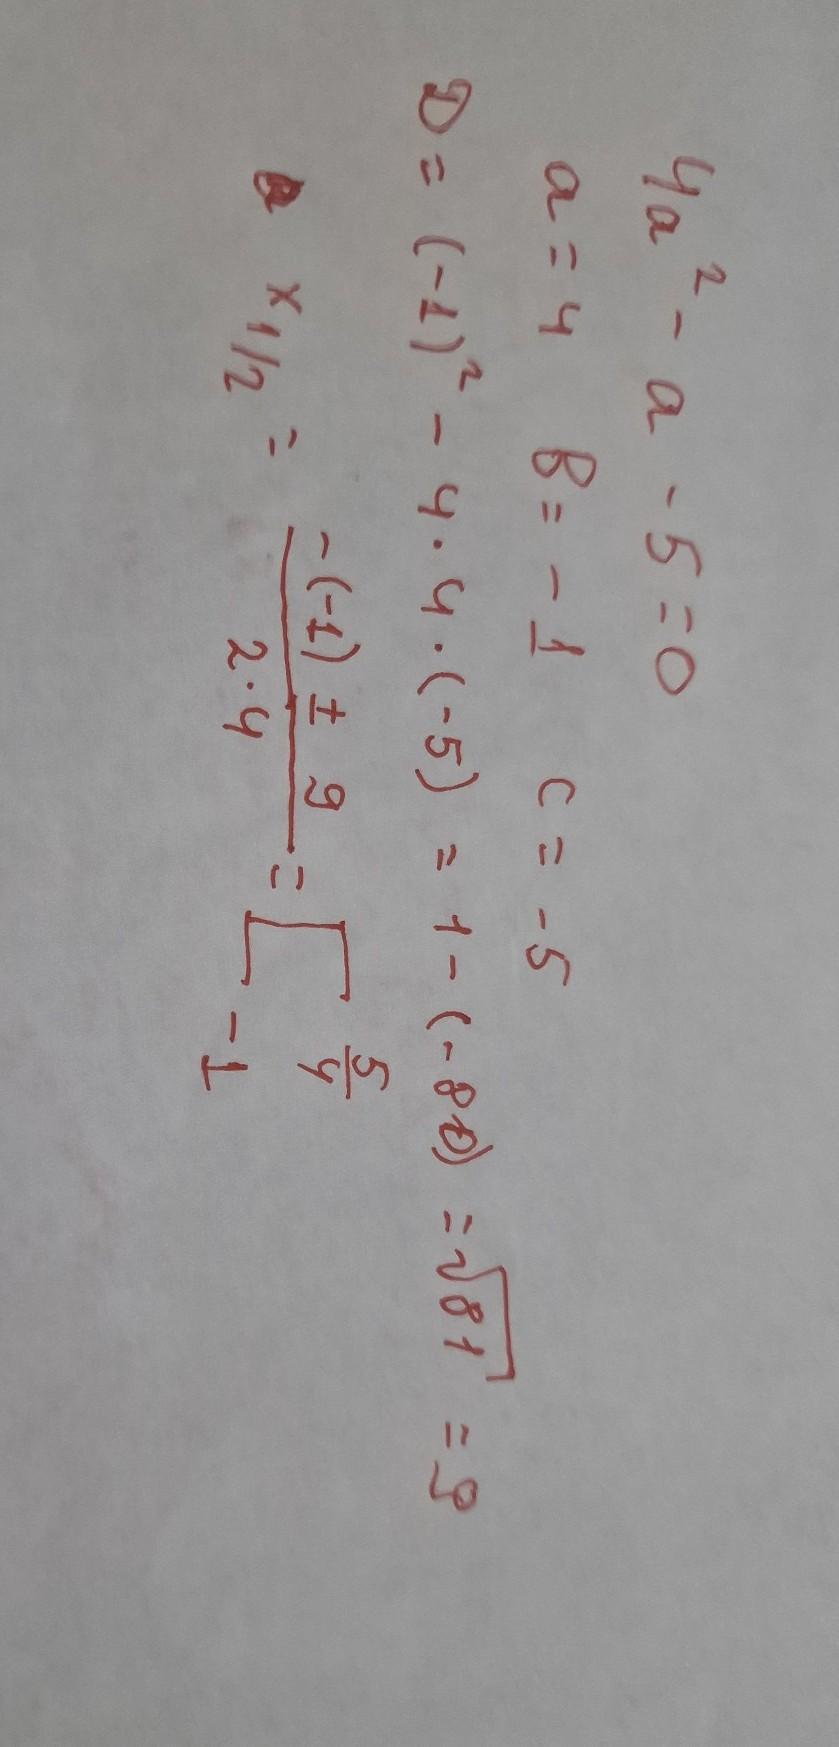 4a² - a - 5 = 0
a = 4 B = -1 c = -5
D = (-1)² - 4·4·(-5) = 1 - (-80) = √81 = 9
x1/2 = (-(-1) ± 9)/(2·4) = [ 5/4
-1